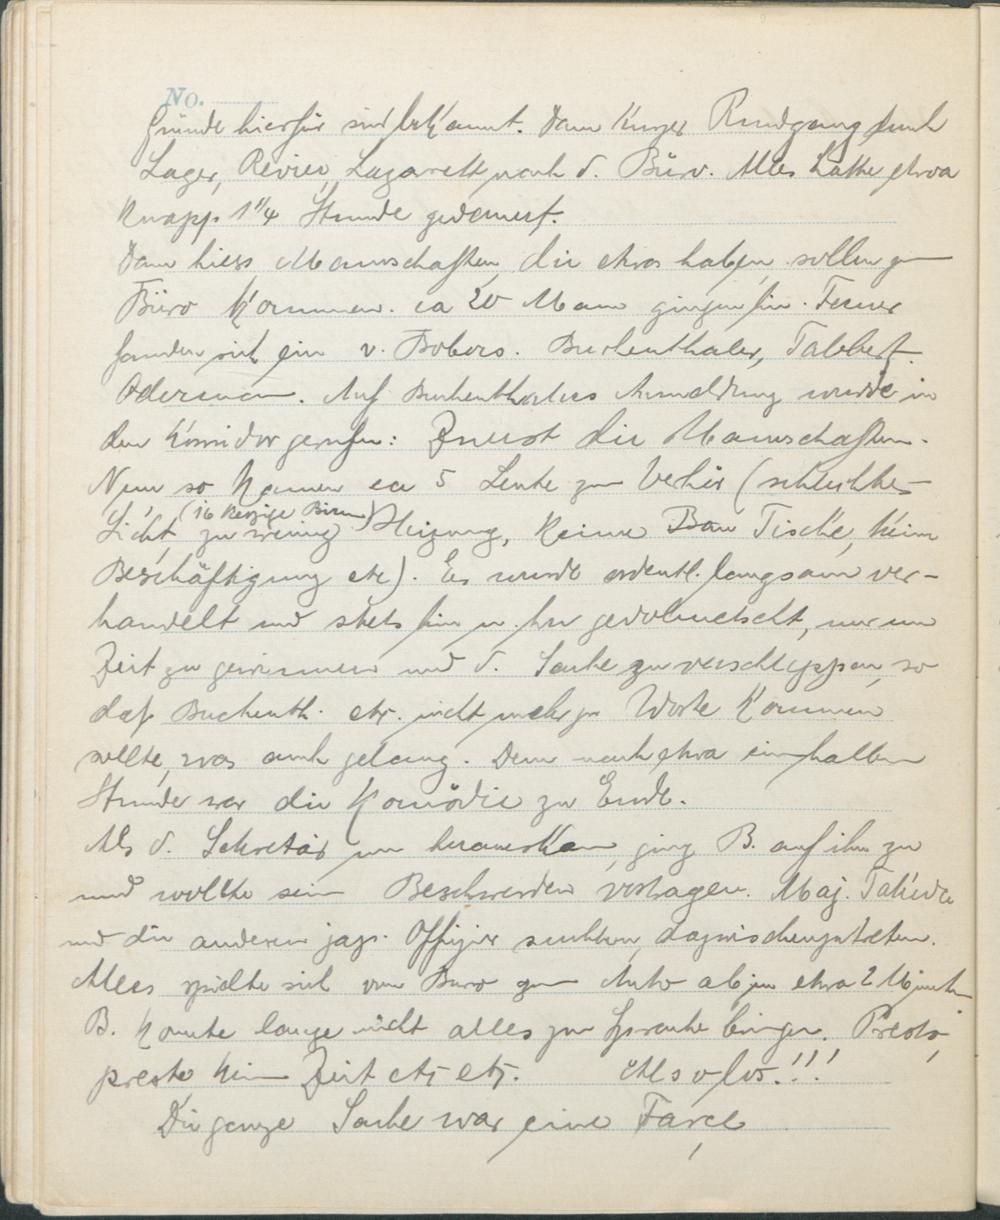 No.
Gründe hierfür sind bekannt. Dann kurzer Rundgang durch
Lager, Revier, Lazarett nach d. Büro. Alles hatte etwa
knapp 1 1/4 Stunde gedauert.
Dann hiess Mannschaften, die etwas haben sollen zum
Büro kommen. ca 20 Mann gingen hin. Ferner
fanden sich ein v. Bobers. Buchenthaler,
Auf Buchenthalers Anmeldung wurde in
den Korridor gerufen: Zuerst die Mannschaften.
Nun so kamen ca 5 Leute zum Verhör (schlechtes
(16 kerzige Birne)
Licht, zu wenig Heizung, keine Tische, kein
Beschäftigung etc). Es wurde ordentl. langsam ver-
handelt und stets hin u. her gedolmetscht, nur um
Zeit zu gewinnen und d. Sache zu verschleppen, so
daß Buchenth. etc. nicht mehr zu Worte kommen
sollte, was auch gelang. Denn nach etwa einhalben
Stunde war die Komödie zu Ende.
Als d. Sekretär nun herauskam, ging B. auf ihn zu
und wollte sein Beschwerden vortragen. Maj. Takida
und die anderen jap. Offizier suchten, dazwischenzutreten.
Alles spielte sich vom Buro zum Auto ab, in etwa 2 Minuten
B. konnte lange nicht alles zur Sprache bringen. Presto,
presto kein Zeit etz etz. Also los!!!
Die ganze Sache war eine Farce